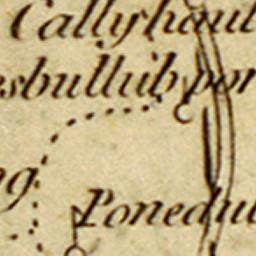 Callyhaut
esbullub por
ng
Ponedul